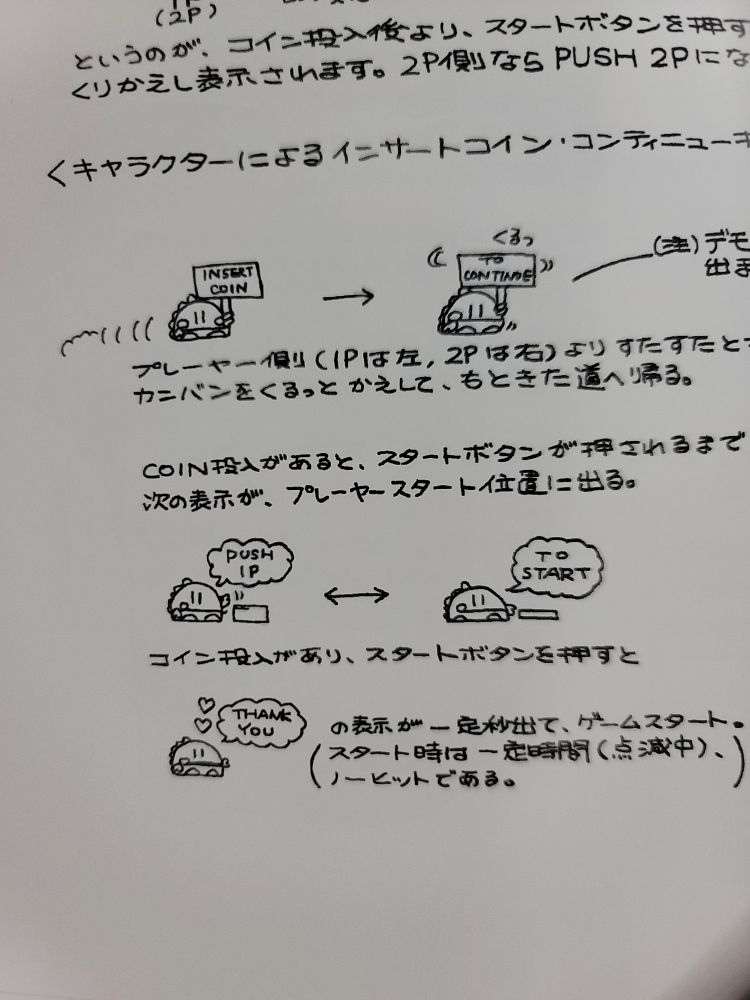 (2P)
というのが、コイン投入後より、スタートボタンを押す
くりかえし表示されます。2P側なら PUSH 2Pにな
<キャラクターによるインサートコイン・コンティニュー
INSERT
COIN
くるっ
TO
CONTINUE
(注)デモ
出ま
プレーヤー側(1Pは左,2Pは右)よりすたすたと
カンバンをくるっとかえして、もときた道へ帰る。
COIN投入があると、スタートボタンが押されるまで
次の表示が、プレーヤースタート位置に出る。
PUSH
1P
TO
START
コイン投入があり、スタートボタンを押すと
THANK
YOU
の表示が一定秒出て、ゲームスタート。
(スタート時は一定時間(点滅中)、
ノーヒットである。)